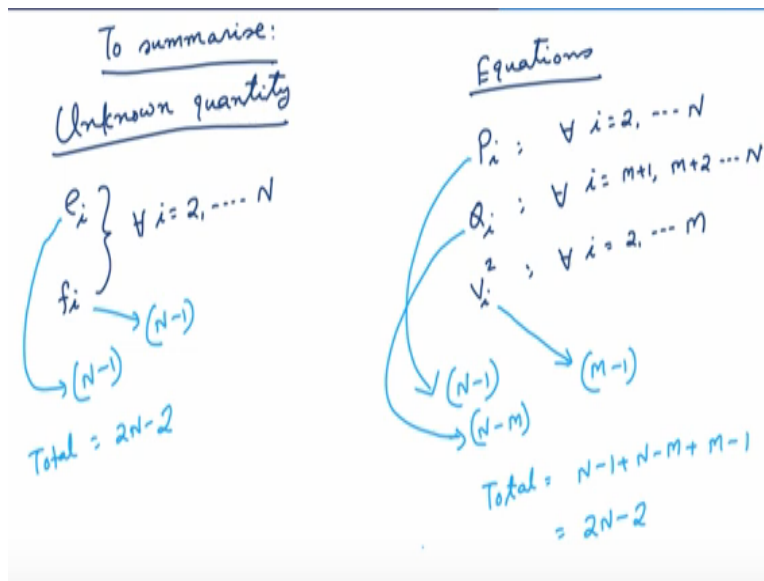 To summarise:
Unknown quantity
e_i } ∀ i = 2, ---- N
f_i
(N-1)
(N-1)
Total = 2N-2
Equations
P_i ; ∀ i = 2, --- N
Q_i ; ∀ i = m+1, m+2 --- N
V_i^2 ; ∀ i = 2, --- M
(M-1)
(N-1)
(N-M)
Total = N-1+N-M+M-1
= 2N-2